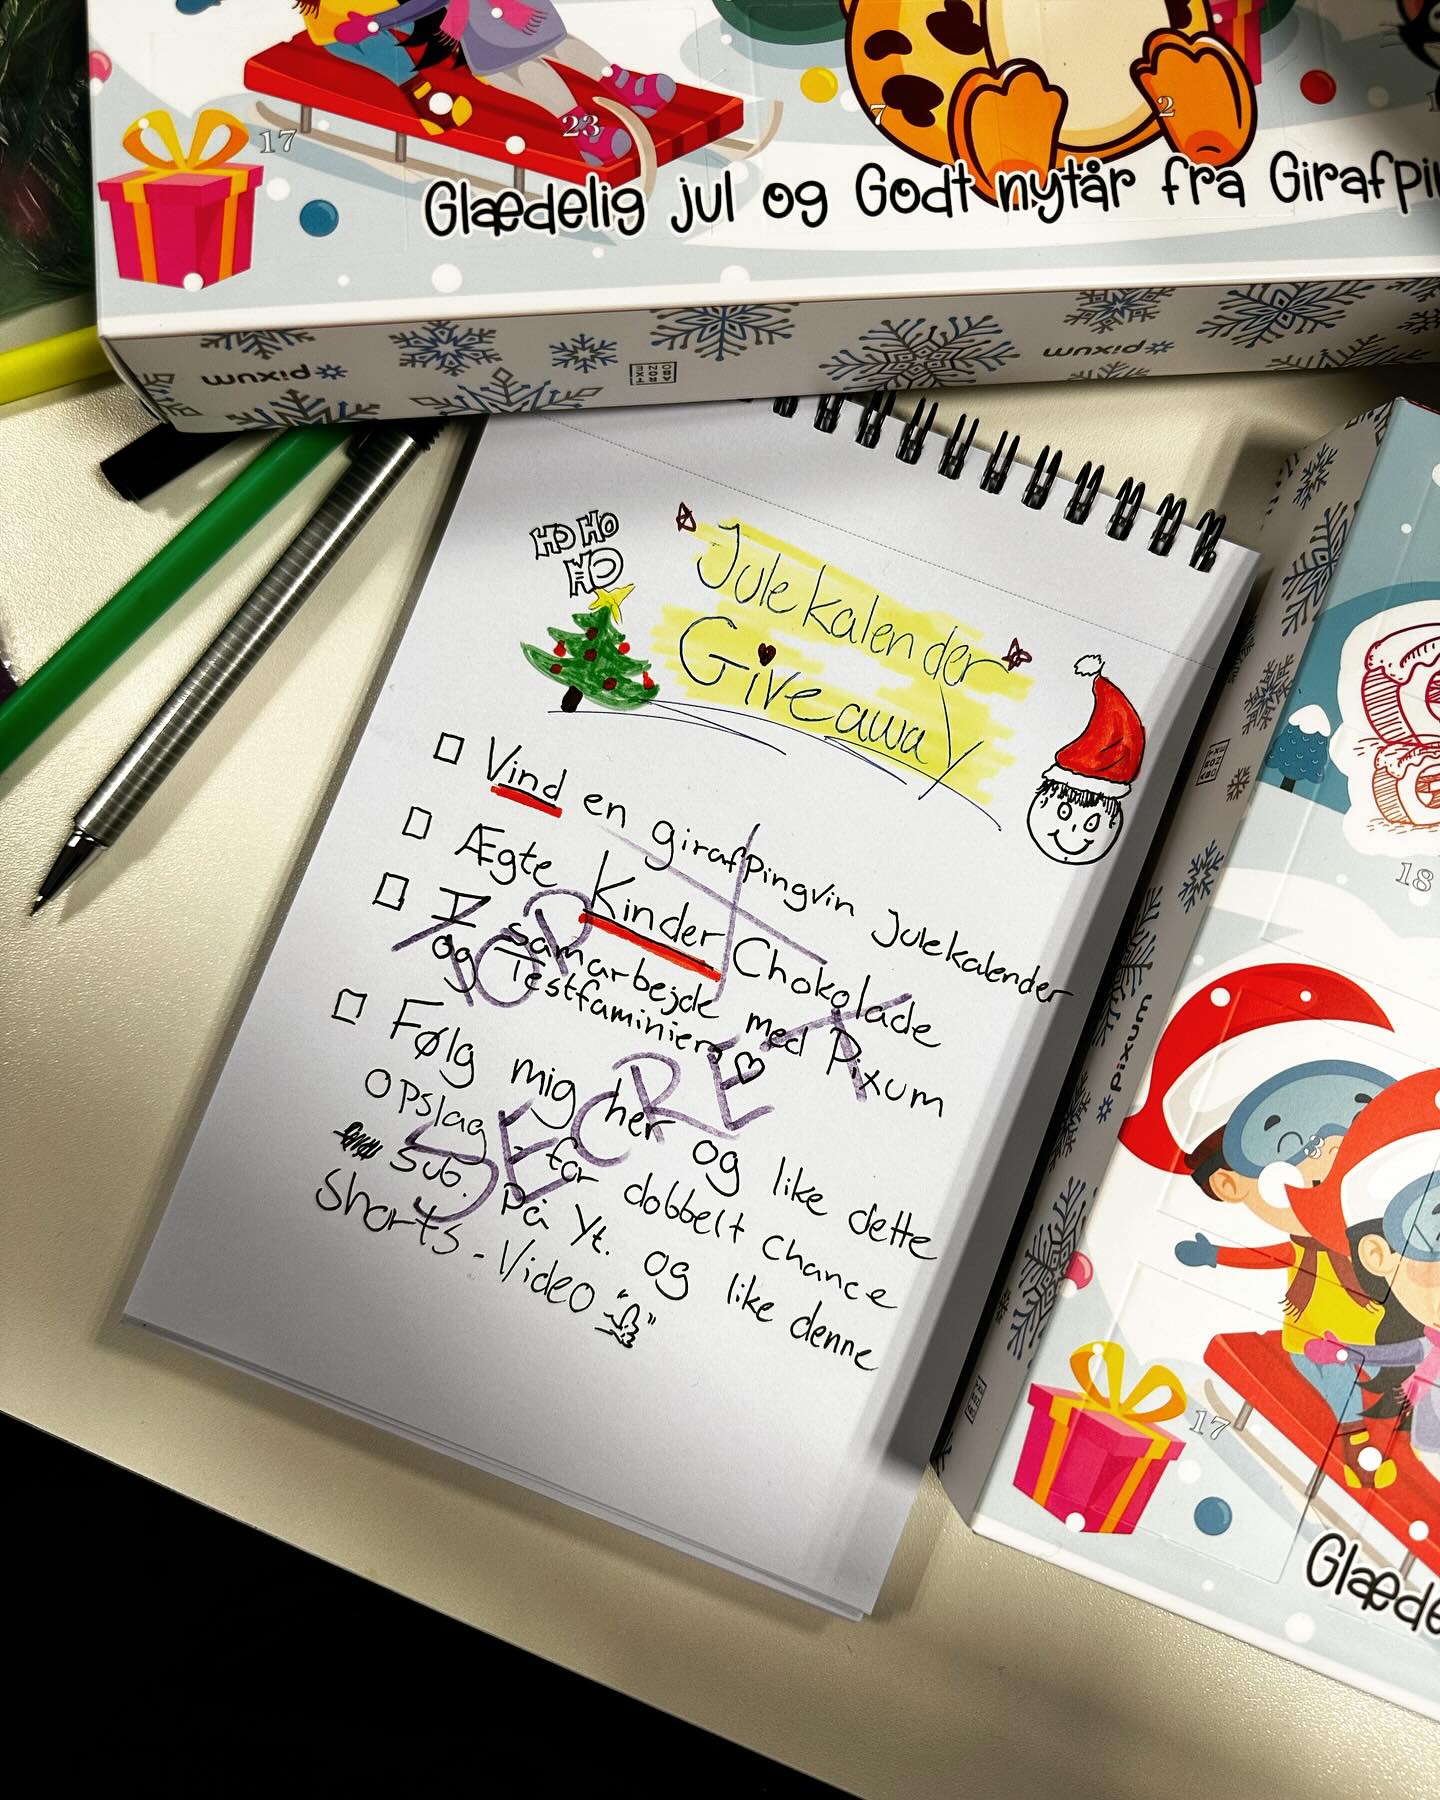 17
23
7
2
Glædelig jul og Godt nytår fra Girafpin
pixum
ART
BOX
ONE
pixum
HO HO
HO
Julekalender
Giveaway
Vind en girafpingvin Julekalender
Ægte Kinder Chokolade
I samarbejde med Pixum
og Testfaminiern
TOP SECRET
Følg mig her og like dette
Opslag - for dobbelt chance
sub. på Yt. og like denne
Shorts - Video
18
pixum
17
Glæde